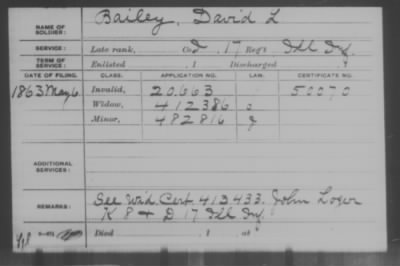 NAME OF SOLDIER: Bailey, David L
SERVICE: Late rank, Co. D, 17 Reg't Ill Inf.
TERM OF SERVICE: Enlisted , 1 Discharged , 1
DATE OF FILING. CLASS. APPLICATION NO. LAW. CERTIFICATE NO.
1863 May 6 Invalid, 20.663 50070
Widow, 412386
Minor, 482816
ADDITIONAL SERVICES:
REMARKS: See Wid. Cert. 413433. John
K 8 + D 17 Ill Inf.
Died , 1 , at